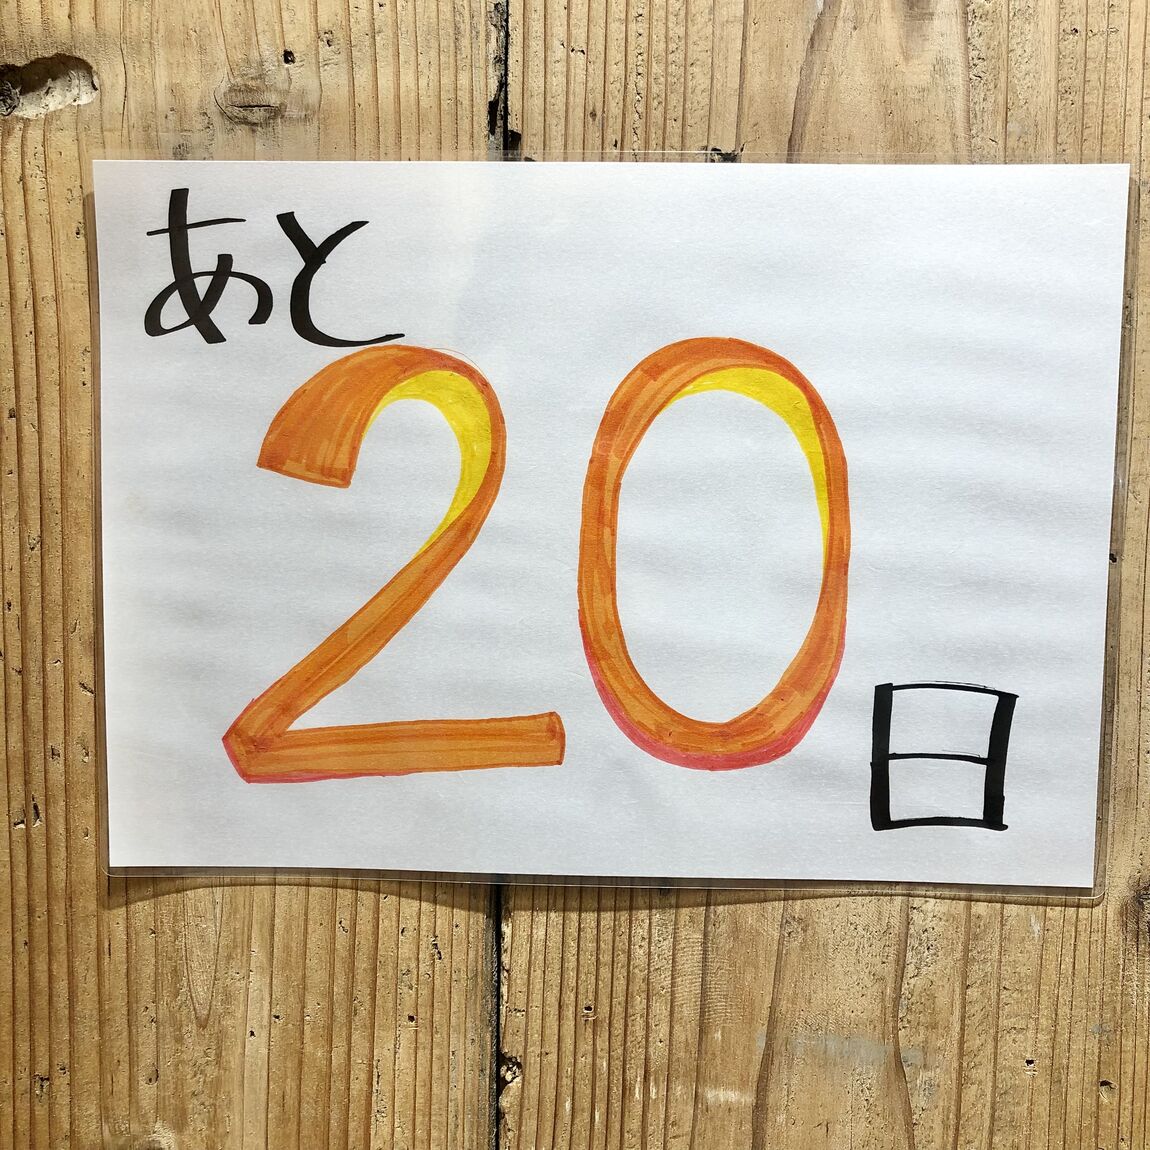 あと
20
日